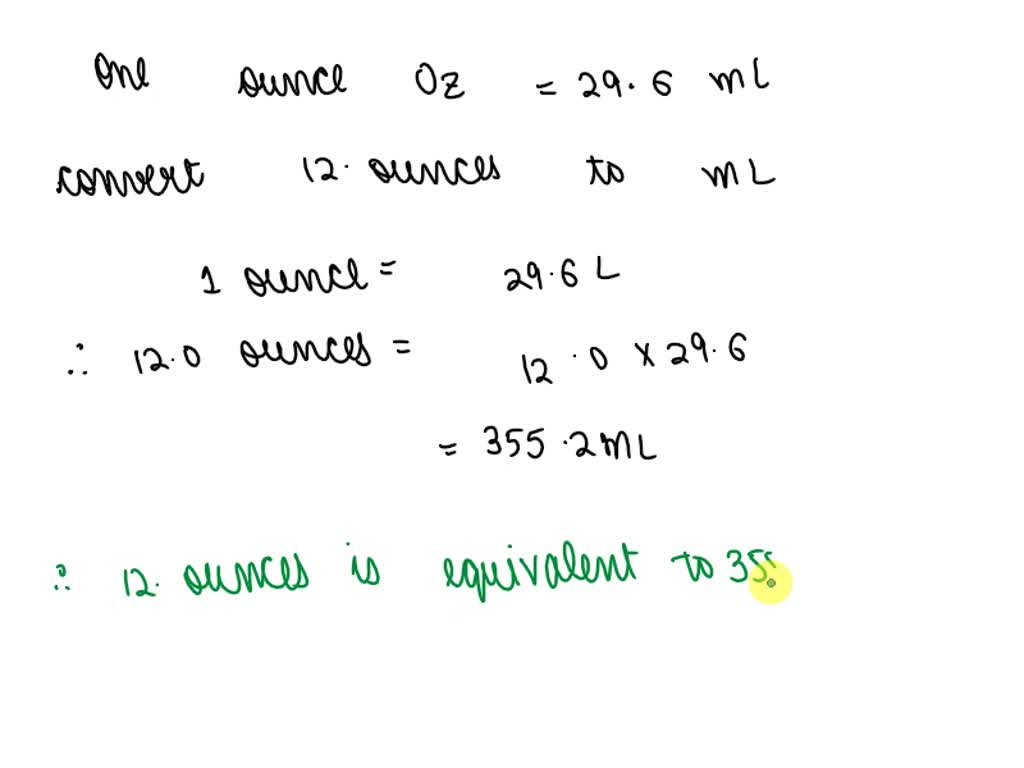 One ounce Oz = 29.6 mL
convert 12. ounces to mL
1 ounce = 29.6 L
∴ 12.0 ounces = 12.0 x 29.6
= 355.2 mL
∴ 12. ounces is equivalent to 355